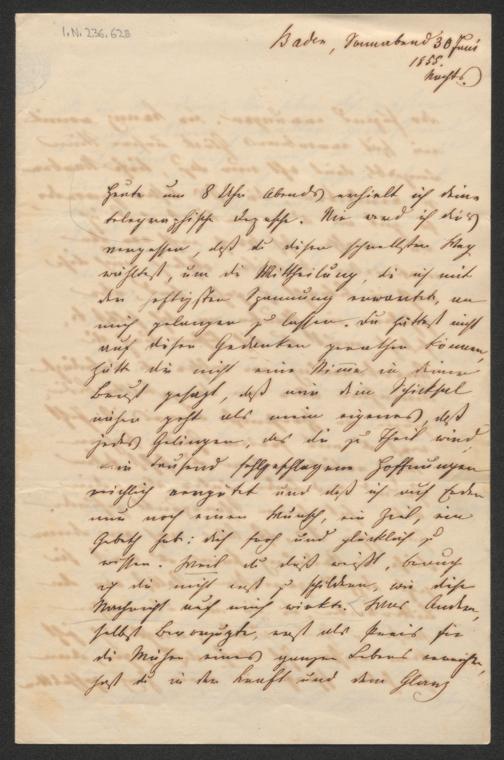 I.N. 236.628
Baden, Sonnabend 30 Juni
1855.
Nachts.
Heute um 8 Uhr Abends erhielt ich deine
telegraphische Depesche. Nie werd ich dirs
vergessen, daß du diesen schnellsten Weg
wähltest, um die Mittheilung, die ich mit
der Spannung erwartete, an
mich gelangen zu lassen. Du hättest nicht
auf diesen Gedanken gerathen können,
hätte dir nicht eine Stimme in deiner
Brust gesagt, daß mir dein Schicksal
näher geht als mein eigenes, daß
jedes Gelingen, das dir zu Theil wird,
mir tausend fehlgeschlagene Hoffnungen
reichlich vergütet und daß ich auf Erden
nur noch einen Wunsch, ein Ziel, ein
Gebeth hab: dich froh und glücklich zu
wissen. Weil du dieß weißt, brauch
ich dir nicht erst zu schildern, wie diese
Nachricht auf mich wirkte. Was Andere,
selbst Bevorzugte, erst als Preis für
die Mühen eines ganzen Lebens erreichen,
hast du in der Kraft und dem Glanz